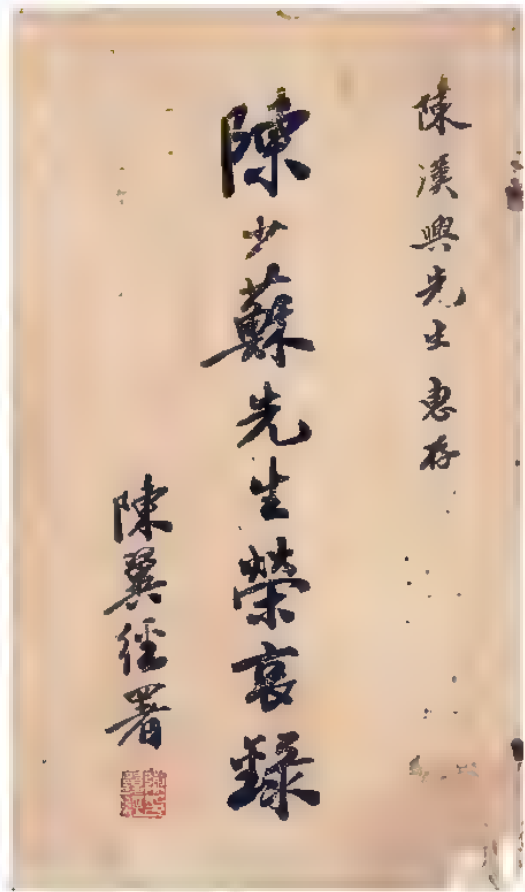 陳漢興先生惠存
陳少蘇先生榮哀錄
陳翼經署